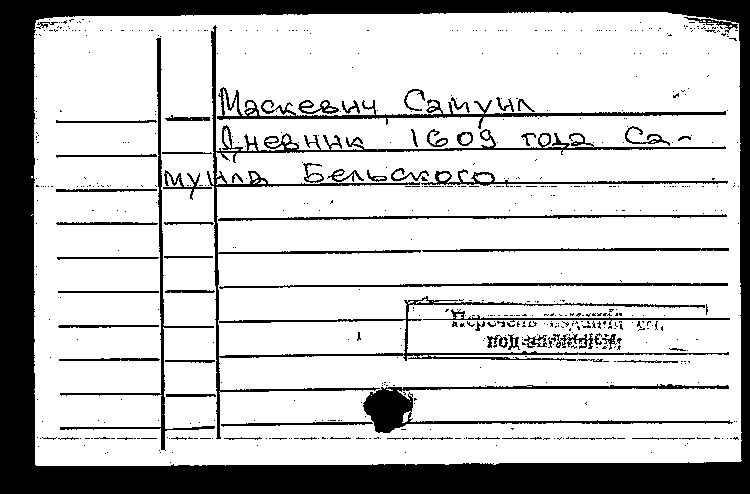 Маскевич, Самуил
Дневник 1609 года Са-
муила Бельского.
Перечень изданий см.
под